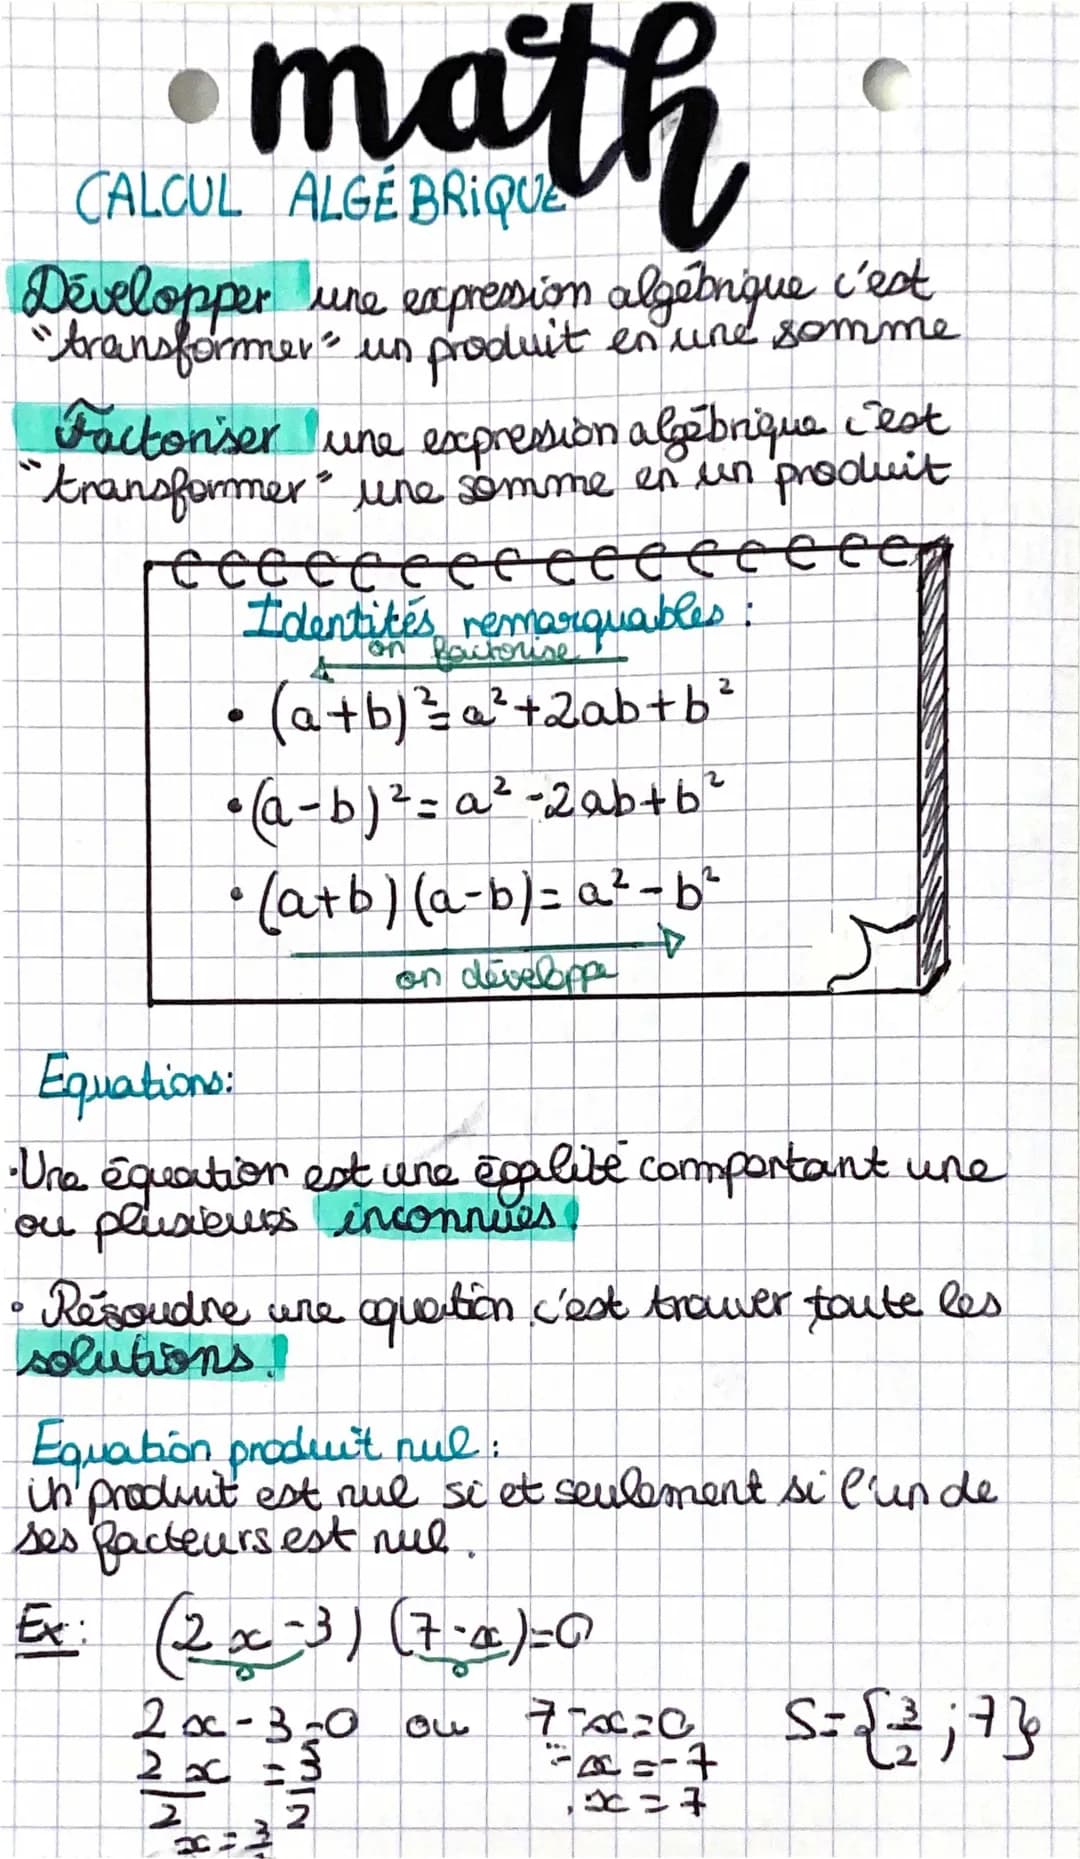 math
CALCUL ALGÉBRIQUE
Développer une expression algébrique c'est
"transformer" un produit en une somme
Factoriser une expression algébrique c'est
"transformer" une somme en un produit
Identités remarquables :
on factorise
• (a+b)²= a²+2ab+b²
• (a-b)²= a²-2ab+b²
• (a+b)(a-b)= a²-b²
on développe
Equations:
•Une équation est une égalité comportant une
ou plusieurs inconnues.
• Résoudre une équation c'est trouver toute les
solutions.
Equation produit nul :
un produit est nul si et seulement si l'un de
ses facteurs est nul.
Ex: (2x-3) (7-x)=0
0 0
2x-3=0 ou 7-x=0 S={3/2 ; 7}
2x/2 = 3/2 -x=-7
x=3 x=7